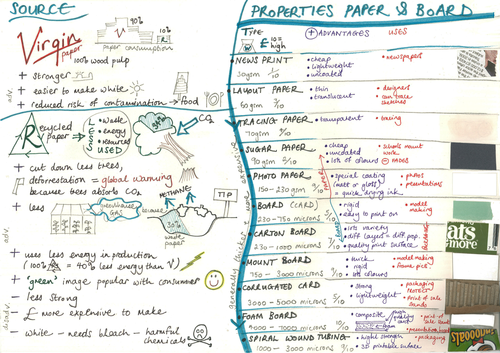 SOURCE
90%
10%
paper consumption
Virgin
paper
100% wood pulp
adv.
+ stronger
+ easier to make white
+ reduced risk of contamination → food
R
Recycled
paper
LESS
• waste
• energy
• resources
USED
CO₂
+ cut down less trees,
deforestation = global warming
because trees absorb CO₂
METHANE
TIP
+ less
greenhouse
gas
because
30%
waste
paper
adv.
+ uses less energy in production
(100% = 40% less energy than V)
+ "green" image popular with consumer
disadv.
- less strong
- £ more expensive to make
- white - needs bleach - harmful
chemicals
PROPERTIES PAPER & BOARD
TYPE
£ 10 = high
+ ADVANTAGES
USES
• NEWS PRINT
50gsm
/10
• cheap
• lightweight
• uncoated
• newspapers
• LAYOUT PAPER
60gsm 3/10
• thin
translucent
• designers
• can trace
sketches
• TRACING PAPER
70gsm
/10
• transparent
• tracing
• SUGAR PAPER
90gsm /10
• cheap
• uncoated
• lots of colours
• schools mount
work
- FADES
• PHOTO PAPER
150 - 230 gsm 9/10
• special coating
(matt or gloss)
= quick drying ink
• photos
• presentations
• BOARD (CARD)
230 - 750 microns 5/10
• rigid
• easy to print on
• model
making
• CARTON BOARD
230 - 1000 microns 7/10
• lots variety
• diff layers = diff prop.
• quality print surface
• MOUNT BOARD
750 - 3000 microns 8/10
• thick
• rigid
• lots colours
• model making
• frame pics
• CORRUGATED CARD
3000 - 5000 microns 5/10
• strong
• lightweight
• packaging
• point of sale
stands
• FOAM BOARD
4000 - 7000 microns 10/10
• composite
• point of sale
• SPIRAL WOUND TUBING
1000 - 3000 microns 10/10
• hight strength
• 3D printable surface
• packaging
• tubes
generally thicker & more expensive
ats
&more